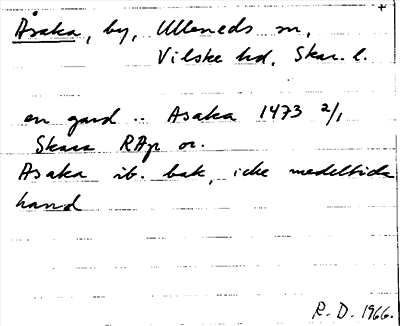 Åsaka, by, Ulleneds sn,
Vilske hd, Skar. l.
en gard .. Asaka 1473 2/1
Skara RAp or.
Asaka ib. bak, icke medeltida
hand
R. D. 1966.